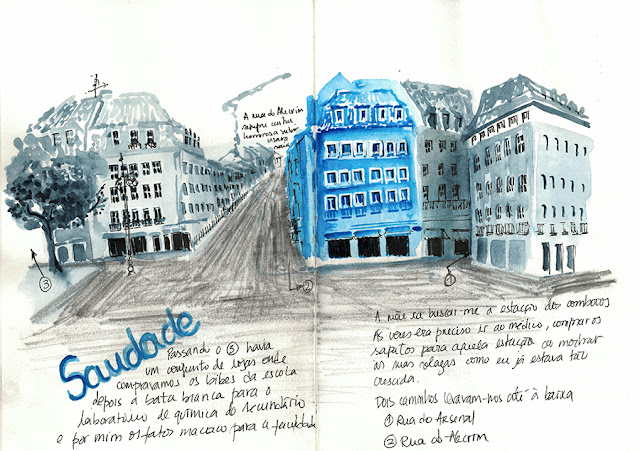 A rua do Alecrim
sempre custou
horrores a subir
usava
saia
③
②
①
Saudade
Passando o ③ havia
um conjunto de lojas onde
compravamos os bibes da escola
depois a bata branca para o
laboratório de química do secundário
e por mim os fatos macaco para a faculdade
A mãe ia buscar-me à estação dos comboios
Às vezes era preciso ir ao médico, comprar os
sapatos para aquela estação ou mostrar
às suas colegas como eu já estava tão
crescida.
Dois caminhos levavam-nos até à baixa
① Rua do Arsenal
② Rua do Alecrim